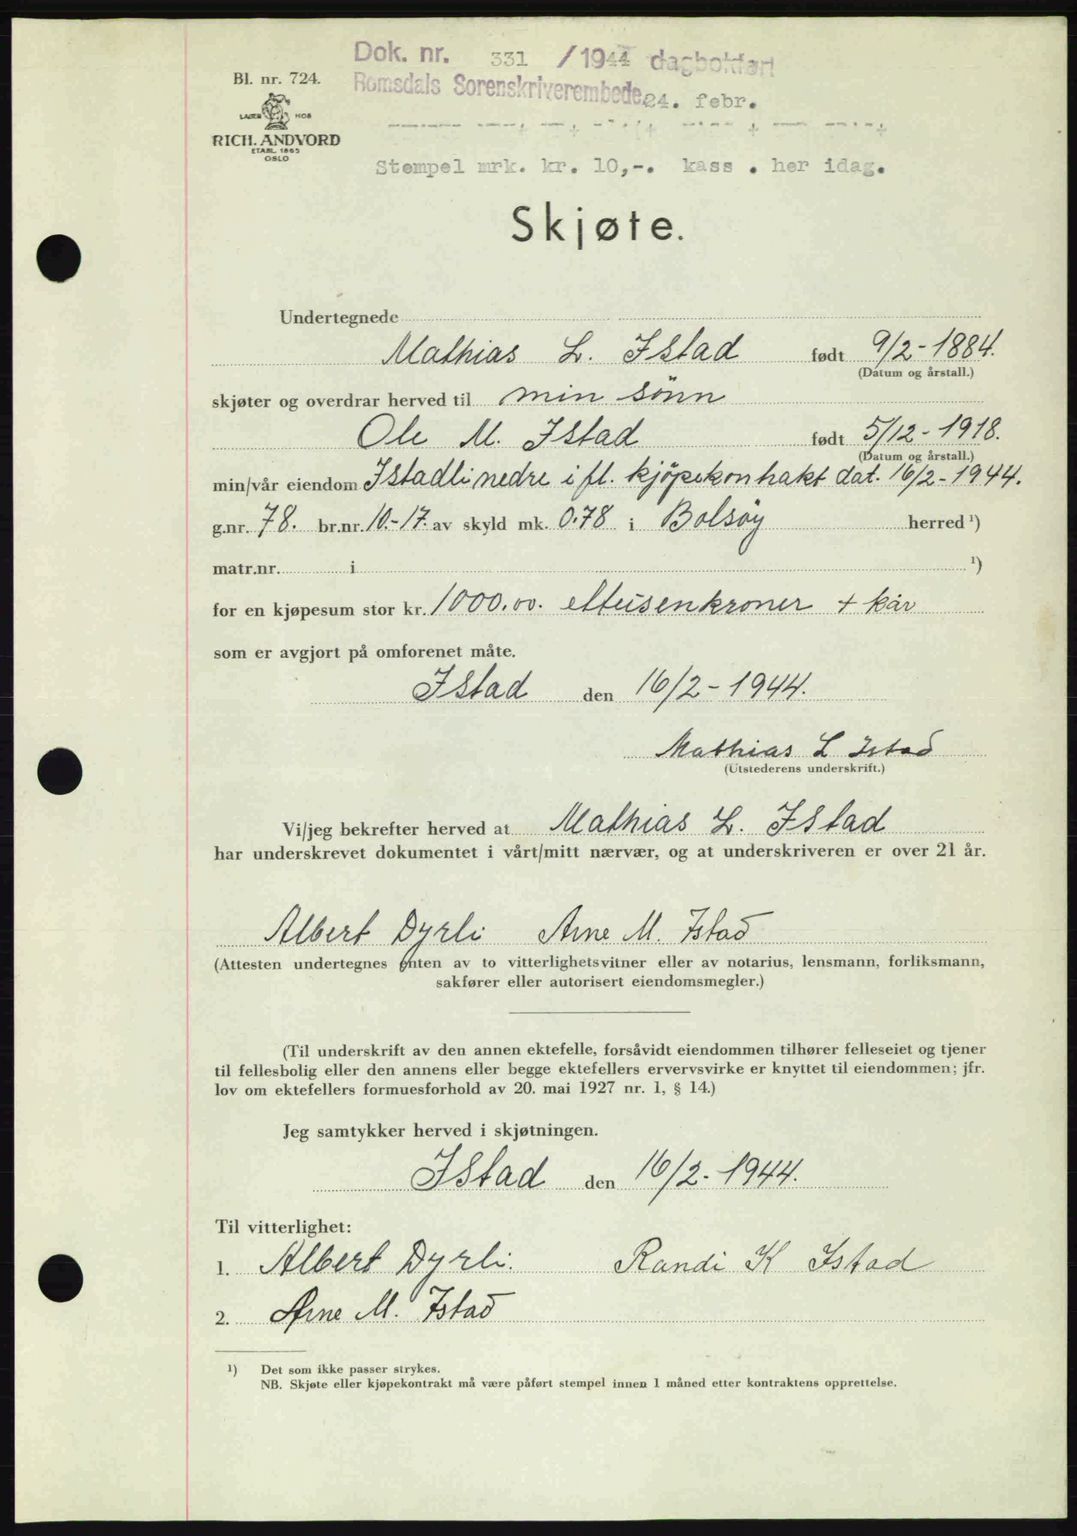 Dok. nr. 331 / 1944 dagbokført
Bl. nr. 724.
Romsdals Sorenskriverembede 24. febr.
LAGER HOS
RICH. ANDVORD
ETABL. 1865
OSLO
Stempel mrk. kr. 10,-. kass . her idag.
Skjøte.
Undertegnede
Mathias L. Istad født 9/2-1884.
(Datum og årstall.)
skjøter og overdrar herved til min sönn
Ole M. Istad født 5/12-1918.
(Datum og årstall.)
min/vår eiendom Istadli nedre i fl. kjöpekontrakt dat. 16/2-1944.
g.nr. 78. br.nr. 10.-17. av skyld mk. 0.78 i Bolsöy herred ¹)
matr.nr. i ¹)
for en kjøpesum stor kr. 1000.00. ettusenkroner + kår
som er avgjort på omforenet måte.
Istad den 16/2-1944.
Mathias L Istad
(Utstederens underskrift.)
Vi/jeg bekrefter herved at Mathias L. Istad
har underskrevet dokumentet i vårt/mitt nærvær, og at underskriveren er over 21 år.
Albert Dyrli Arne M. Istad
(Attesten undertegnes enten av to vitterlighetsvitner eller av notarius, lensmann, forliksmann,
sakfører eller autorisert eiendomsmegler.)
(Til underskrift av den annen ektefelle, forsåvidt eiendommen tilhører felleseiet og tjener
til fellesbolig eller den annens eller begge ektefellers ervervsvirke er knyttet til eiendommen; jfr.
lov om ektefellers formuesforhold av 20. mai 1927 nr. 1, § 14.)
Jeg samtykker herved i skjøtningen.
Istad den 16/2-1944.
Til vitterlighet:
1. Albert Dyrli. Randi K Istad
2. Arne M. Istad
¹) Det som ikke passer strykes.
NB. Skjøte eller kjøpekontrakt må være påført stempel innen 1 måned etter kontraktens opprettelse.